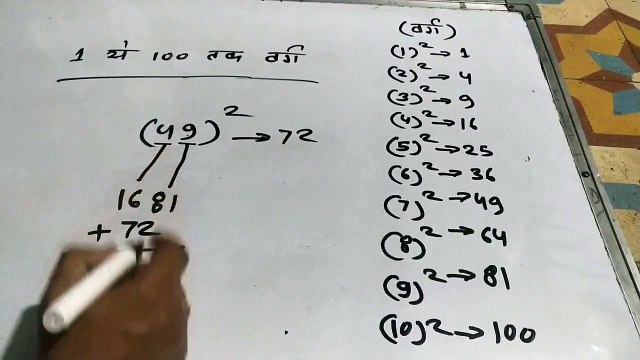 1 से 100 तक वर्ग
(49)² → 72
1681
+ 72
(वर्ग)
(1)² → 1
(2)² → 4
(3)² → 9
(4)² → 16
(5)² → 25
(6)² → 36
(7)² → 49
(8)² → 64
(9)² → 81
(10)² → 100